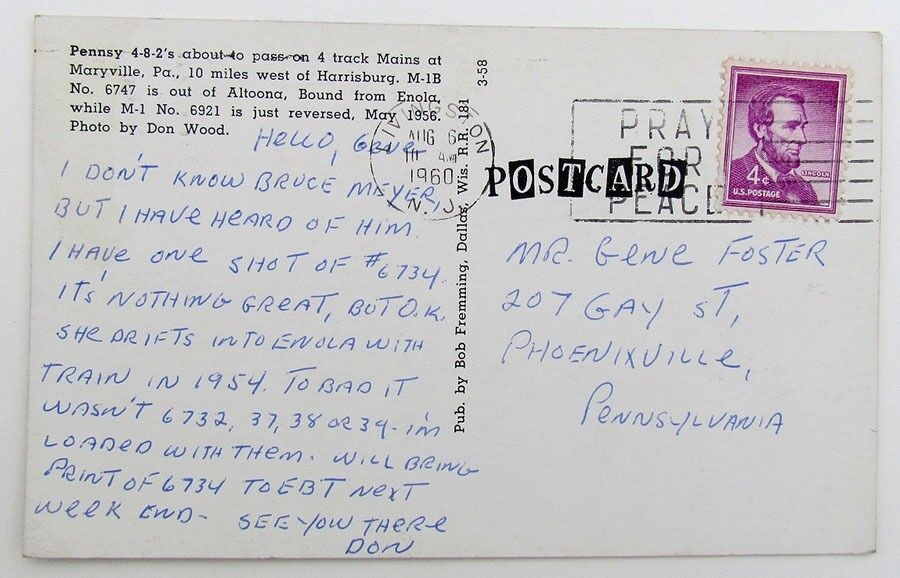 Pennsy 4-8-2's about to pass on 4 track Mains at
Maryville, Pa., 10 miles west of Harrisburg. M-1B
No. 6747 is out of Altoona, Bound from Enola,
while M-1 No. 6921 is just reversed, May 1956.
Photo by Don Wood.
HELLO, GENE,
I DON'T KNOW BRUCE MEYER,
BUT I HAVE HEARD OF HIM.
I HAVE ONE SHOT OF #6734.
IT'S NOTHING GREAT, BUT O.K.
SHE DRIFTS INTO ENOLA WITH
TRAIN IN 1954. TO BAD IT
WASN'T 6732, 37, 38 OR 39 - I'M
LOADED WITH THEM. WILL BRING
PRINT OF 6734 TO EBT NEXT
WEEK END - SEE YOU THERE
DON
Pub. by Bob Fremming, Dallas, Wis. R.R. 181 3-58
LIVINGSTON
AUG 6
AM
1960
N. J.
POSTCARD
PRAY
FOR
PEACE
4¢
LINCOLN
U.S. POSTAGE
MR. GENE FOSTER
207 GAY ST,
PHOENIXVILLE,
PENNSYLVANIA